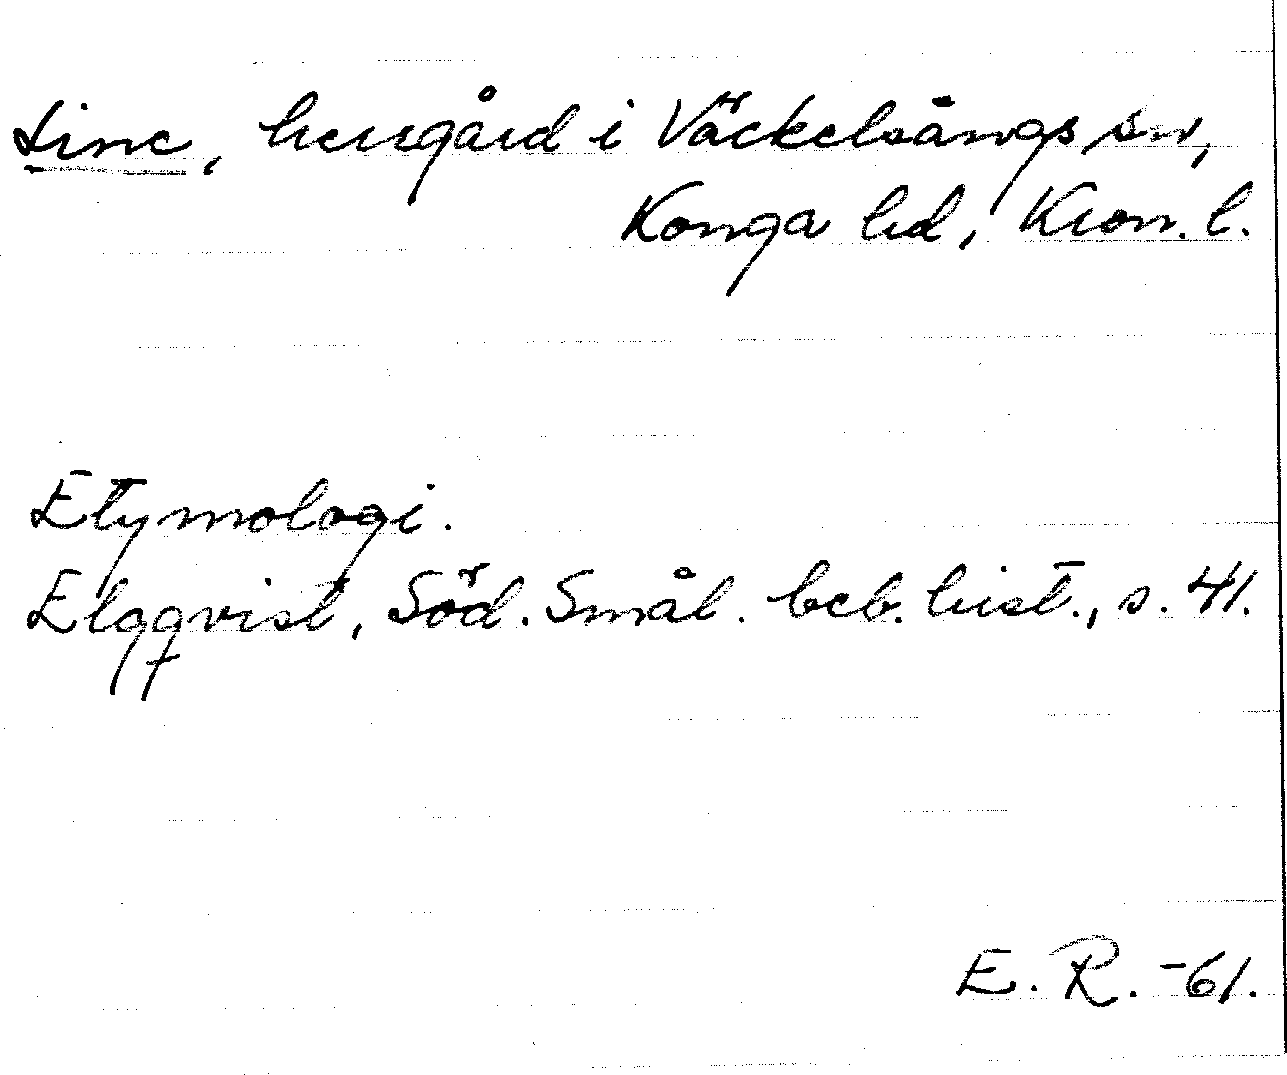 Line, herrgård i Väckelsångs sn,
Konga hd, Kron. l.
Etymologi.
Elgqvist, Söd. Smål. beb. hist., s. 41.
E. R. -61.